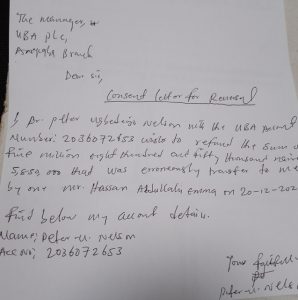 The manager,
UBA plc,
Branch
Dear sir,
Consent letter for Reversal
I Dr. peter Nelson with the UBA Account
Number: 2036072653 wish to refund the sum of
five million eight hundred and fifty thousand naira
that was erroneously transfer to me
by one mr. Hassan Abdullahi Emma on 20-12-202
find below my account details.
Name: Peter-U. Nelson
Acc No: 2036072653
Yours faithfull
Peter-U. Nelson